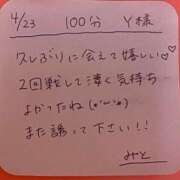 4/23 100分 Y様
久しぶりに会えて嬉しい♡♡
2回戦して凄く気持ち
よかったね(●´ω`●)
また誘って下さい!!
みと